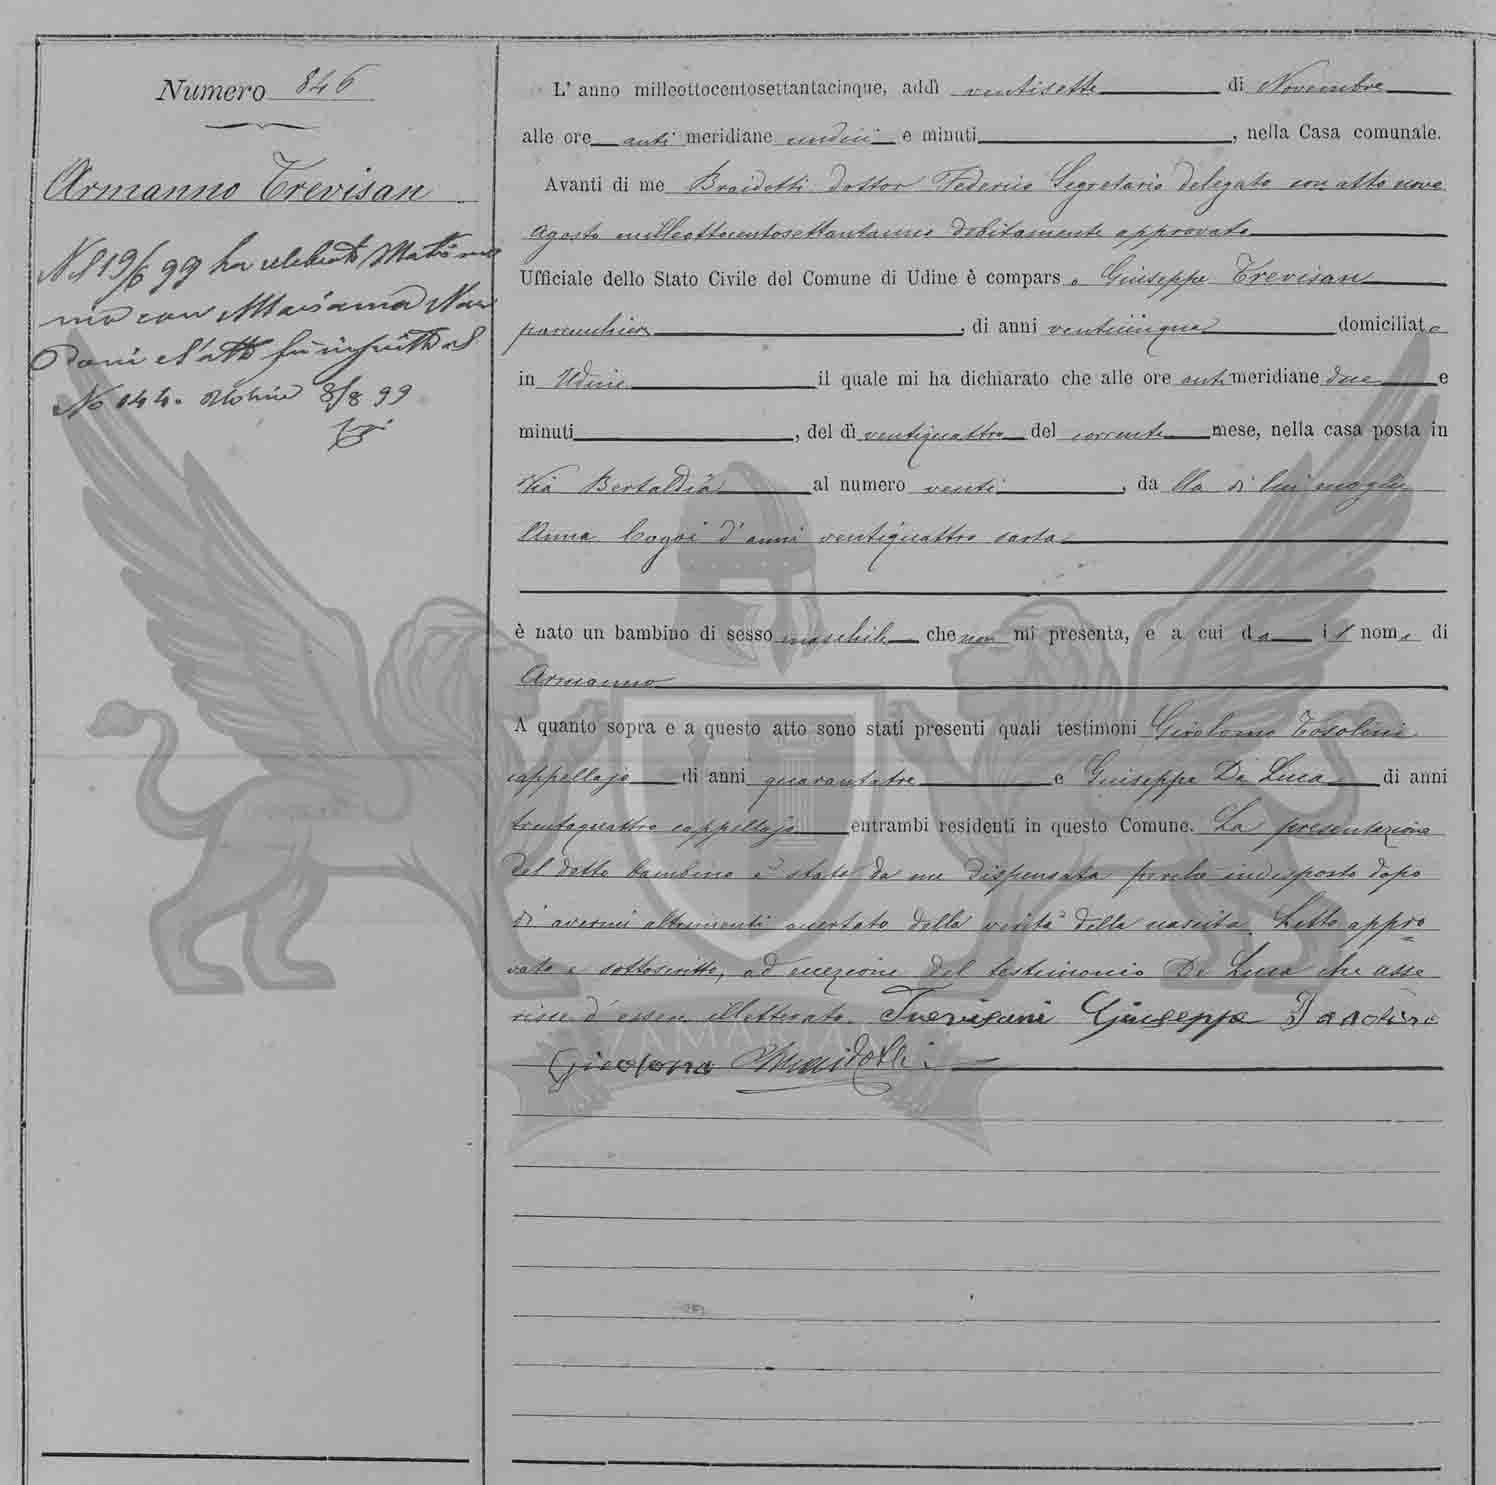 Numero 846
Armanno Trevisan
Nel 19/6 99 ha celebrato Matrimo
nio con Marianna Nar
doni e l'atto fu inscritto al
No 144. Udine 8/8 99
L' anno milleottocentosettantacinque, addì ventisette di Novembre
alle ore anti meridiane undici e minuti , nella Casa comunale.
Avanti di me Braidotti dottor Federico Segretario delegato con atto nove
Agosto milleottocentosettantauno debitamente approvato
Ufficiale dello Stato Civile del Comune di Udine è compars o Giuseppe Trevisan
parucchier , di anni venticinque domiciliato
in Udine il quale mi ha dichiarato che alle ore anti meridiane due e
minuti , del dì ventiquattro del corrente mese, nella casa posta in
Via Bertaldia al numero venti , da lla di lui moglie
Anna Cogoi d'anni ventiquattro sarta
è nato un bambino di sesso maschile che non mi presenta, e a cui da il nome di
Armanno
A quanto sopra e a questo atto sono stati presenti quali testimoni Girolomo Tosolini
cappellajo di anni quarantatre e Giuseppe De Luca di anni
trentaquattro cappellajo entrambi residenti in questo Comune. La presentazione
del detto bambino è stata da me dispensata perchè indisposto dopo
di avermi altrimenti accertato della verità della nascita. Letto appro
vato e sottoscritto, ad eccezione del testimonio De Luca che asse
risce d'essere illetterato. Trevisani Giuseppe
Girolomo Braidotti